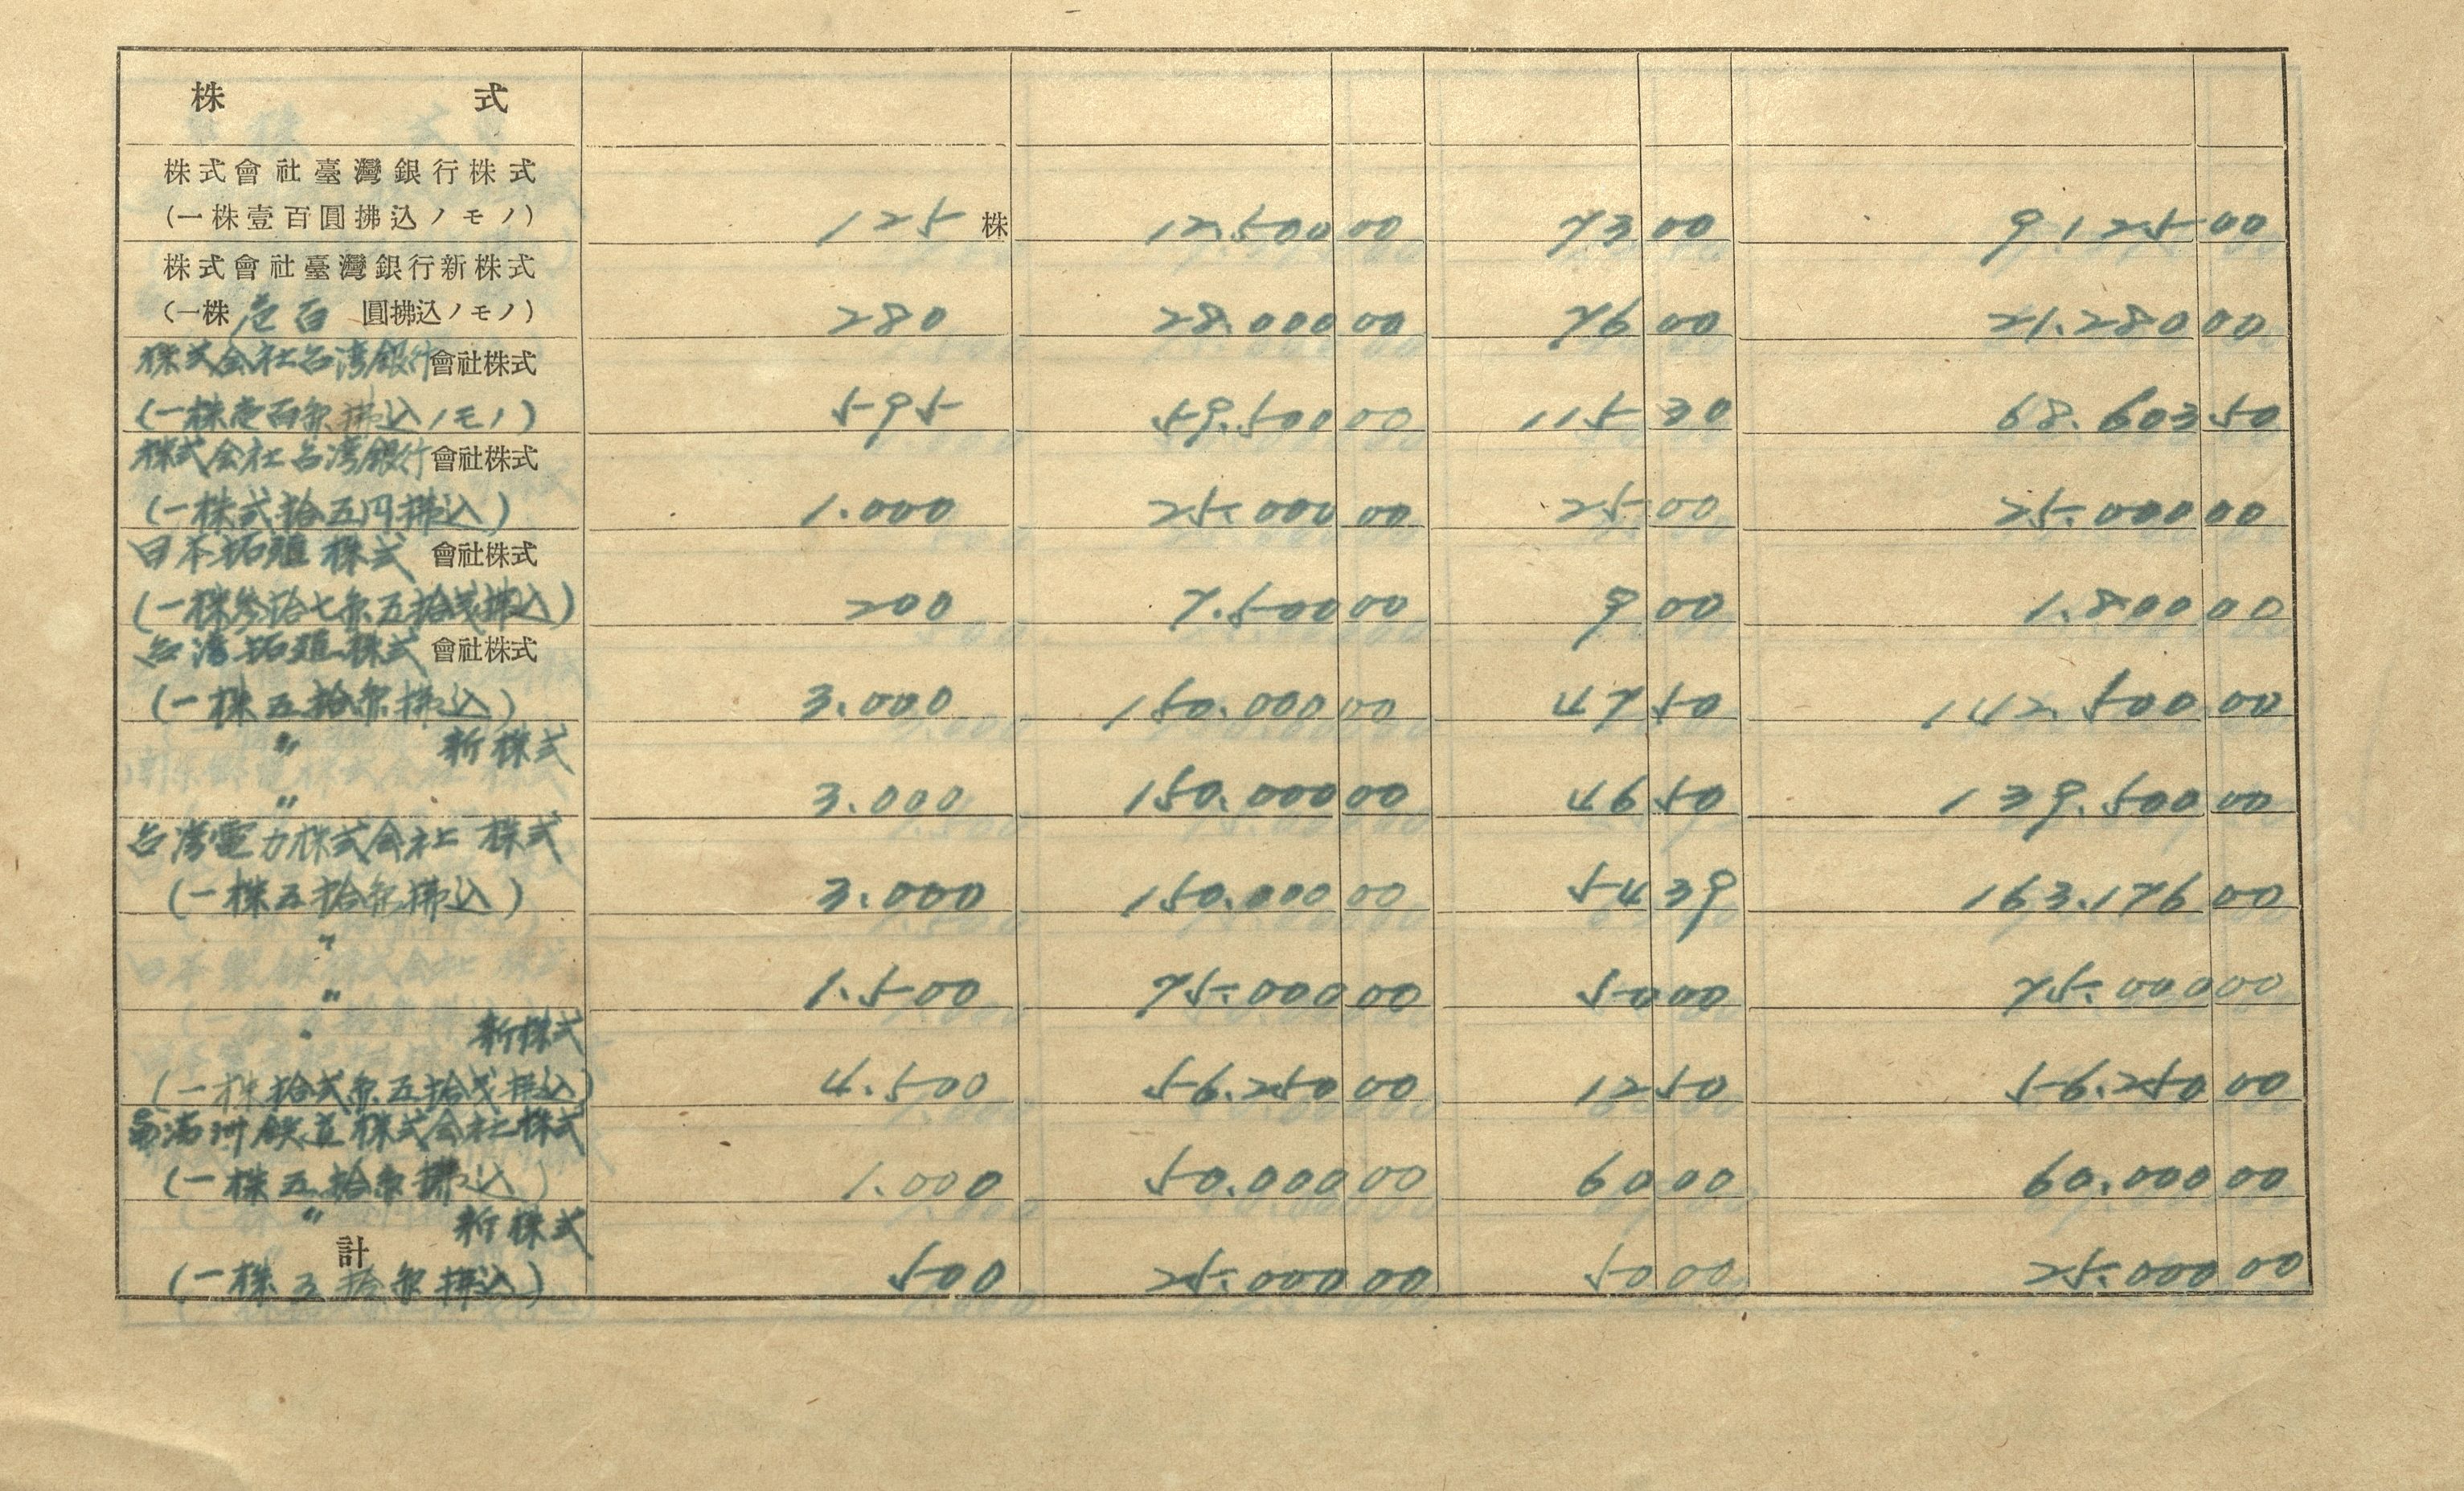 株 式
株式會社臺灣銀行株式
(一株壹百圓拂込ノモノ) 125 株 12.500 00 73 00 9125 00
株式會社臺灣銀行新株式
(一株 壱百 圓拂込ノモノ) 280 28.000 00 76 00 21.280 00
株式会社台湾銀行會社株式
(一株壱百円拂込ノモノ) 595 59.500 00 115 30 68.603 50
株式会社台湾銀行會社株式
(一株弐拾五円拂込) 1.000 25.000 00 25 00 25.000 00
日本拓殖株式 會社株式
(一株参拾七円五拾銭拂込) 200 7.500 00 9 00 1.800 00
台湾拓殖株式 會社株式
(一株五拾円拂込) 3.000 150.000 00 47 50 142.500 00
〃 新株式
〃 3.000 150.000 00 46 50 139.500 00
台湾電力株式会社 株式
(一株五拾円拂込) 3.000 150.000 00 54 39 163.176 00
〃
〃 1.500 75.000 00 50 00 75.000 00
〃 新株式
(一株拾弐円五拾銭拂込) 4.500 56.250 00 12 50 56.250 00
南満洲鉄道株式会社株式
(一株五拾円拂込) 1.000 50.000 00 60 00 60.000 00
〃 新株式
計
(一株五拾円拂込) 500 25.000 00 50 00 25.000 00